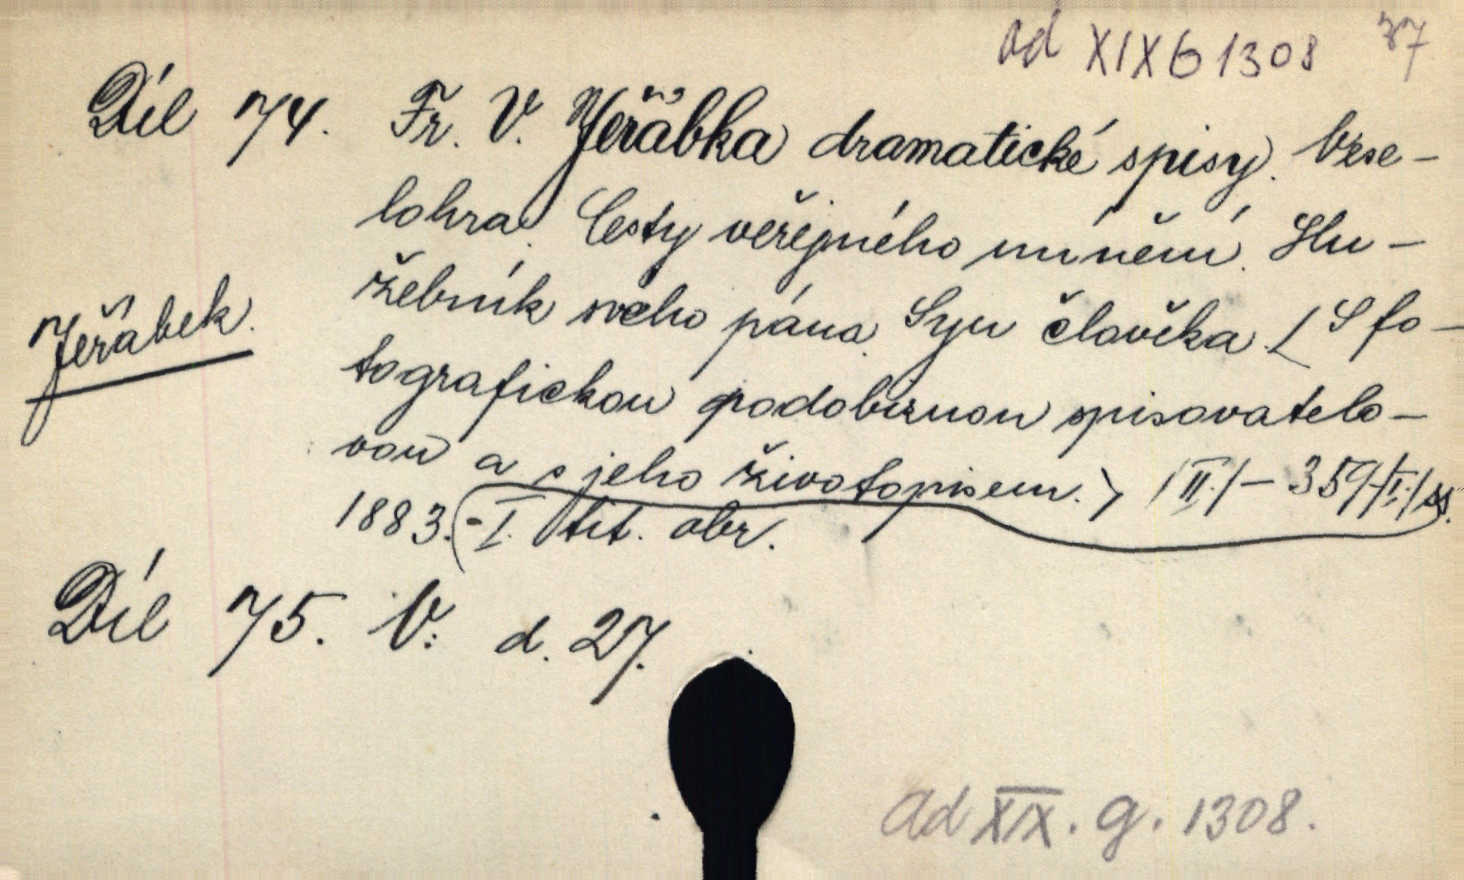 ad XIX G 1308 37
Díl 74. Fr. V. Jeřábka dramatické spisy. Vese-
lohra. Cesty veřejného mínění. Slu-
žebník svého pána. Syn člověka. (S fo-
Jeřábek.
tografickou podobiznou spisovatelo-
vou a s jeho životopisem.) (II.) - 359 (I.) ss.
1883. - I. tit. obr.
Díl 75. V: d. 27.
Ad XIX. g. 1308.